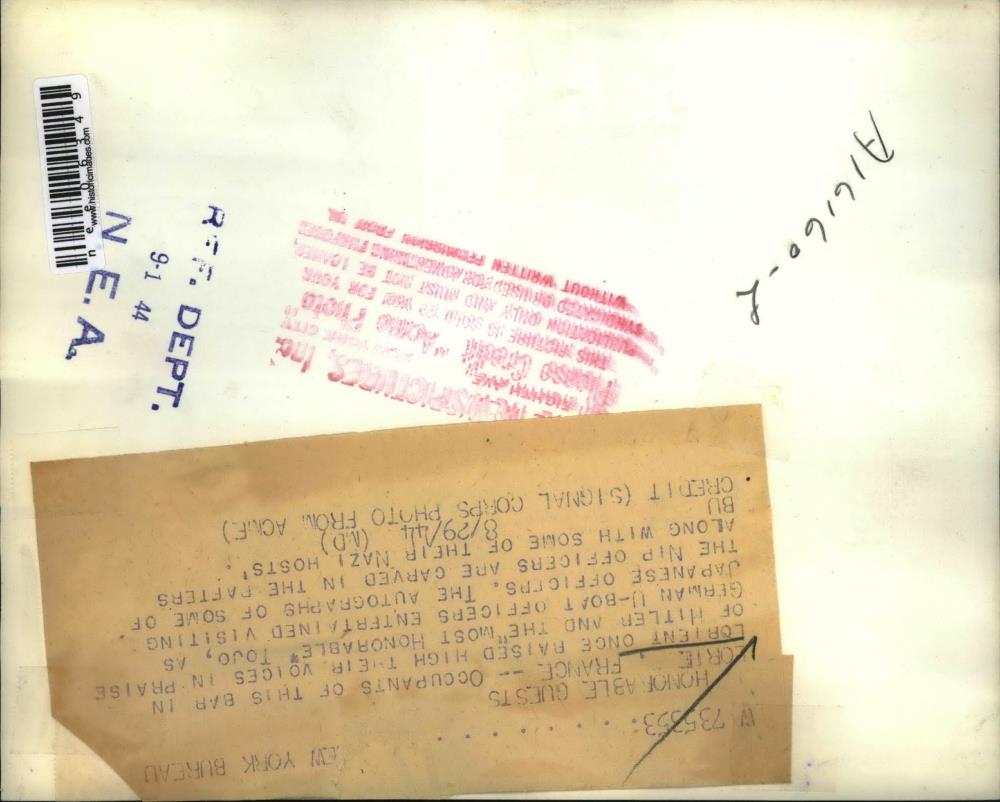 neee06349
www.historicimages.com
N.E.A.
9-1 44
REF. DEPT.
A16160-2
NEWSPICTURES, Inc.
EIGHTH AVE. NEW YORK CITY
Please Credit "Acme Photo"
THIS PICTURE IS SOLD TO YOU FOR YOUR
PUBLICATION ONLY AND MUST NOT BE LOANED,
SYNDICATED OR USED FOR ADVERTISING PURPOSES
WITHOUT WRITTEN PERMISSION FROM US.
EW YORK BUREAU
W 735353. . . . . . .
HONORABLE GUESTS
LORIE , FRANCE -- OCCUPANTS OF THIS BAR IN
LORIENT ONCE RAISED HIGH THEIR VOICES IN PRAISE
OF HITLER AND THE "MOST HONORABLE" TOJO, AS
GERMAN U-BOAT OFFICERS ENTERTAINED VISITING
JAPANESE OFFICERS. THE AUTOGRAPHS OF SOME OF
THE NIP OFFICERS ARE CARVED IN THE RAFTERS
ALONG WITH SOME OF THEIR NAZI 'HOSTS'.
BU 8/29/44 (MD)
CREDIT (SIGNAL CORPS PHOTO FROM ACME)